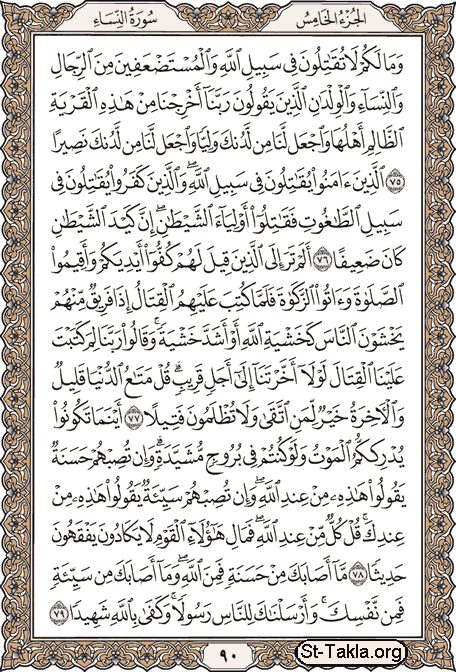 الجزء الخامس سورة النساء
وَمَا لَكُمْ لَا تُقَٰتِلُونَ فِى سَبِيلِ ٱللَّهِ وَٱلْمُسْتَضْعَفِينَ مِنَ ٱلرِّجَالِ
وَٱلنِّسَآءِ وَٱلْوِلْدَٰنِ ٱلَّذِينَ يَقُولُونَ رَبَّنَآ أَخْرِجْنَا مِنْ هَٰذِهِ ٱلْقَرْيَةِ
ٱلظَّالِمِ أَهْلُهَا وَٱجْعَل لَّنَا مِن لَّدُنكَ وَلِيًّا وَٱجْعَل لَّنَا مِن لَّدُنكَ نَصِيرًا
٧٥ ٱلَّذِينَ ءَامَنُوا۟ يُقَٰتِلُونَ فِى سَبِيلِ ٱللَّهِ ۖ وَٱلَّذِينَ كَفَرُوا۟ يُقَٰتِلُونَ فِى
سَبِيلِ ٱلطَّٰغُوتِ فَقَٰتِلُوٓا۟ أَوْلِيَآءَ ٱلشَّيْطَٰنِ ۖ إِنَّ كَيْدَ ٱلشَّيْطَٰنِ
كَانَ ضَعِيفًا ٧٦ أَلَمْ تَرَ إِلَى ٱلَّذِينَ قِيلَ لَهُمْ كُفُّوٓا۟ أَيْدِيَكُمْ وَأَقِيمُوا۟
ٱلصَّلَوٰةَ وَءَاتُوا۟ ٱلزَّكَوٰةَ فَلَمَّا كُتِبَ عَلَيْهِمُ ٱلْقِتَالُ إِذَا فَرِيقٌ مِّنْهُمْ
يَخْشَوْنَ ٱلنَّاسَ كَخَشْيَةِ ٱللَّهِ أَوْ أَشَدَّ خَشْيَةً ۚ وَقَالُوا۟ رَبَّنَا لِمَ كَتَبْتَ
عَلَيْنَا ٱلْقِتَالَ لَوْلَآ أَخَّرْتَنَآ إِلَىٰٓ أَجَلٍ قَرِيبٍ ۗ قُلْ مَتَٰعُ ٱلدُّنْيَا قَلِيلٌ
وَٱلْءَاخِرَةُ خَيْرٌ لِّمَنِ ٱتَّقَىٰ وَلَا تُظْلَمُونَ فَتِيلًا ٧٧ أَيْنَمَا تَكُونُوا۟
يُدْرِككُّمُ ٱلْمَوْتُ وَلَوْ كُنتُمْ فِى بُرُوجٍ مُّشَيَّدَةٍ ۗ وَإِن تُصِبْهُمْ حَسَنَةٌ
يَقُولُوا۟ هَٰذِهِۦ مِنْ عِندِ ٱللَّهِ ۖ وَإِن تُصِبْهُمْ سَيِّئَةٌ يَقُولُوا۟ هَٰذِهِۦ مِنْ
عِندِكَ ۚ قُلْ كُلٌّ مِّنْ عِندِ ٱللَّهِ ۖ فَمَالِ هَٰٓؤُلَآءِ ٱلْقَوْمِ لَا يَكَادُونَ يَفْقَهُونَ
حَدِيثًا ٧٨ مَّآ أَصَابَكَ مِنْ حَسَنَةٍ فَمِنَ ٱللَّهِ ۖ وَمَآ أَصَابَكَ مِن سَيِّئَةٍ
فَمِن نَّفْسِكَ ۚ وَأَرْسَلْنَٰكَ لِلنَّاسِ رَسُولًا ۚ وَكَفَىٰ بِٱللَّهِ شَهِيدًا ٧٩
٩٠
St-Takla.org